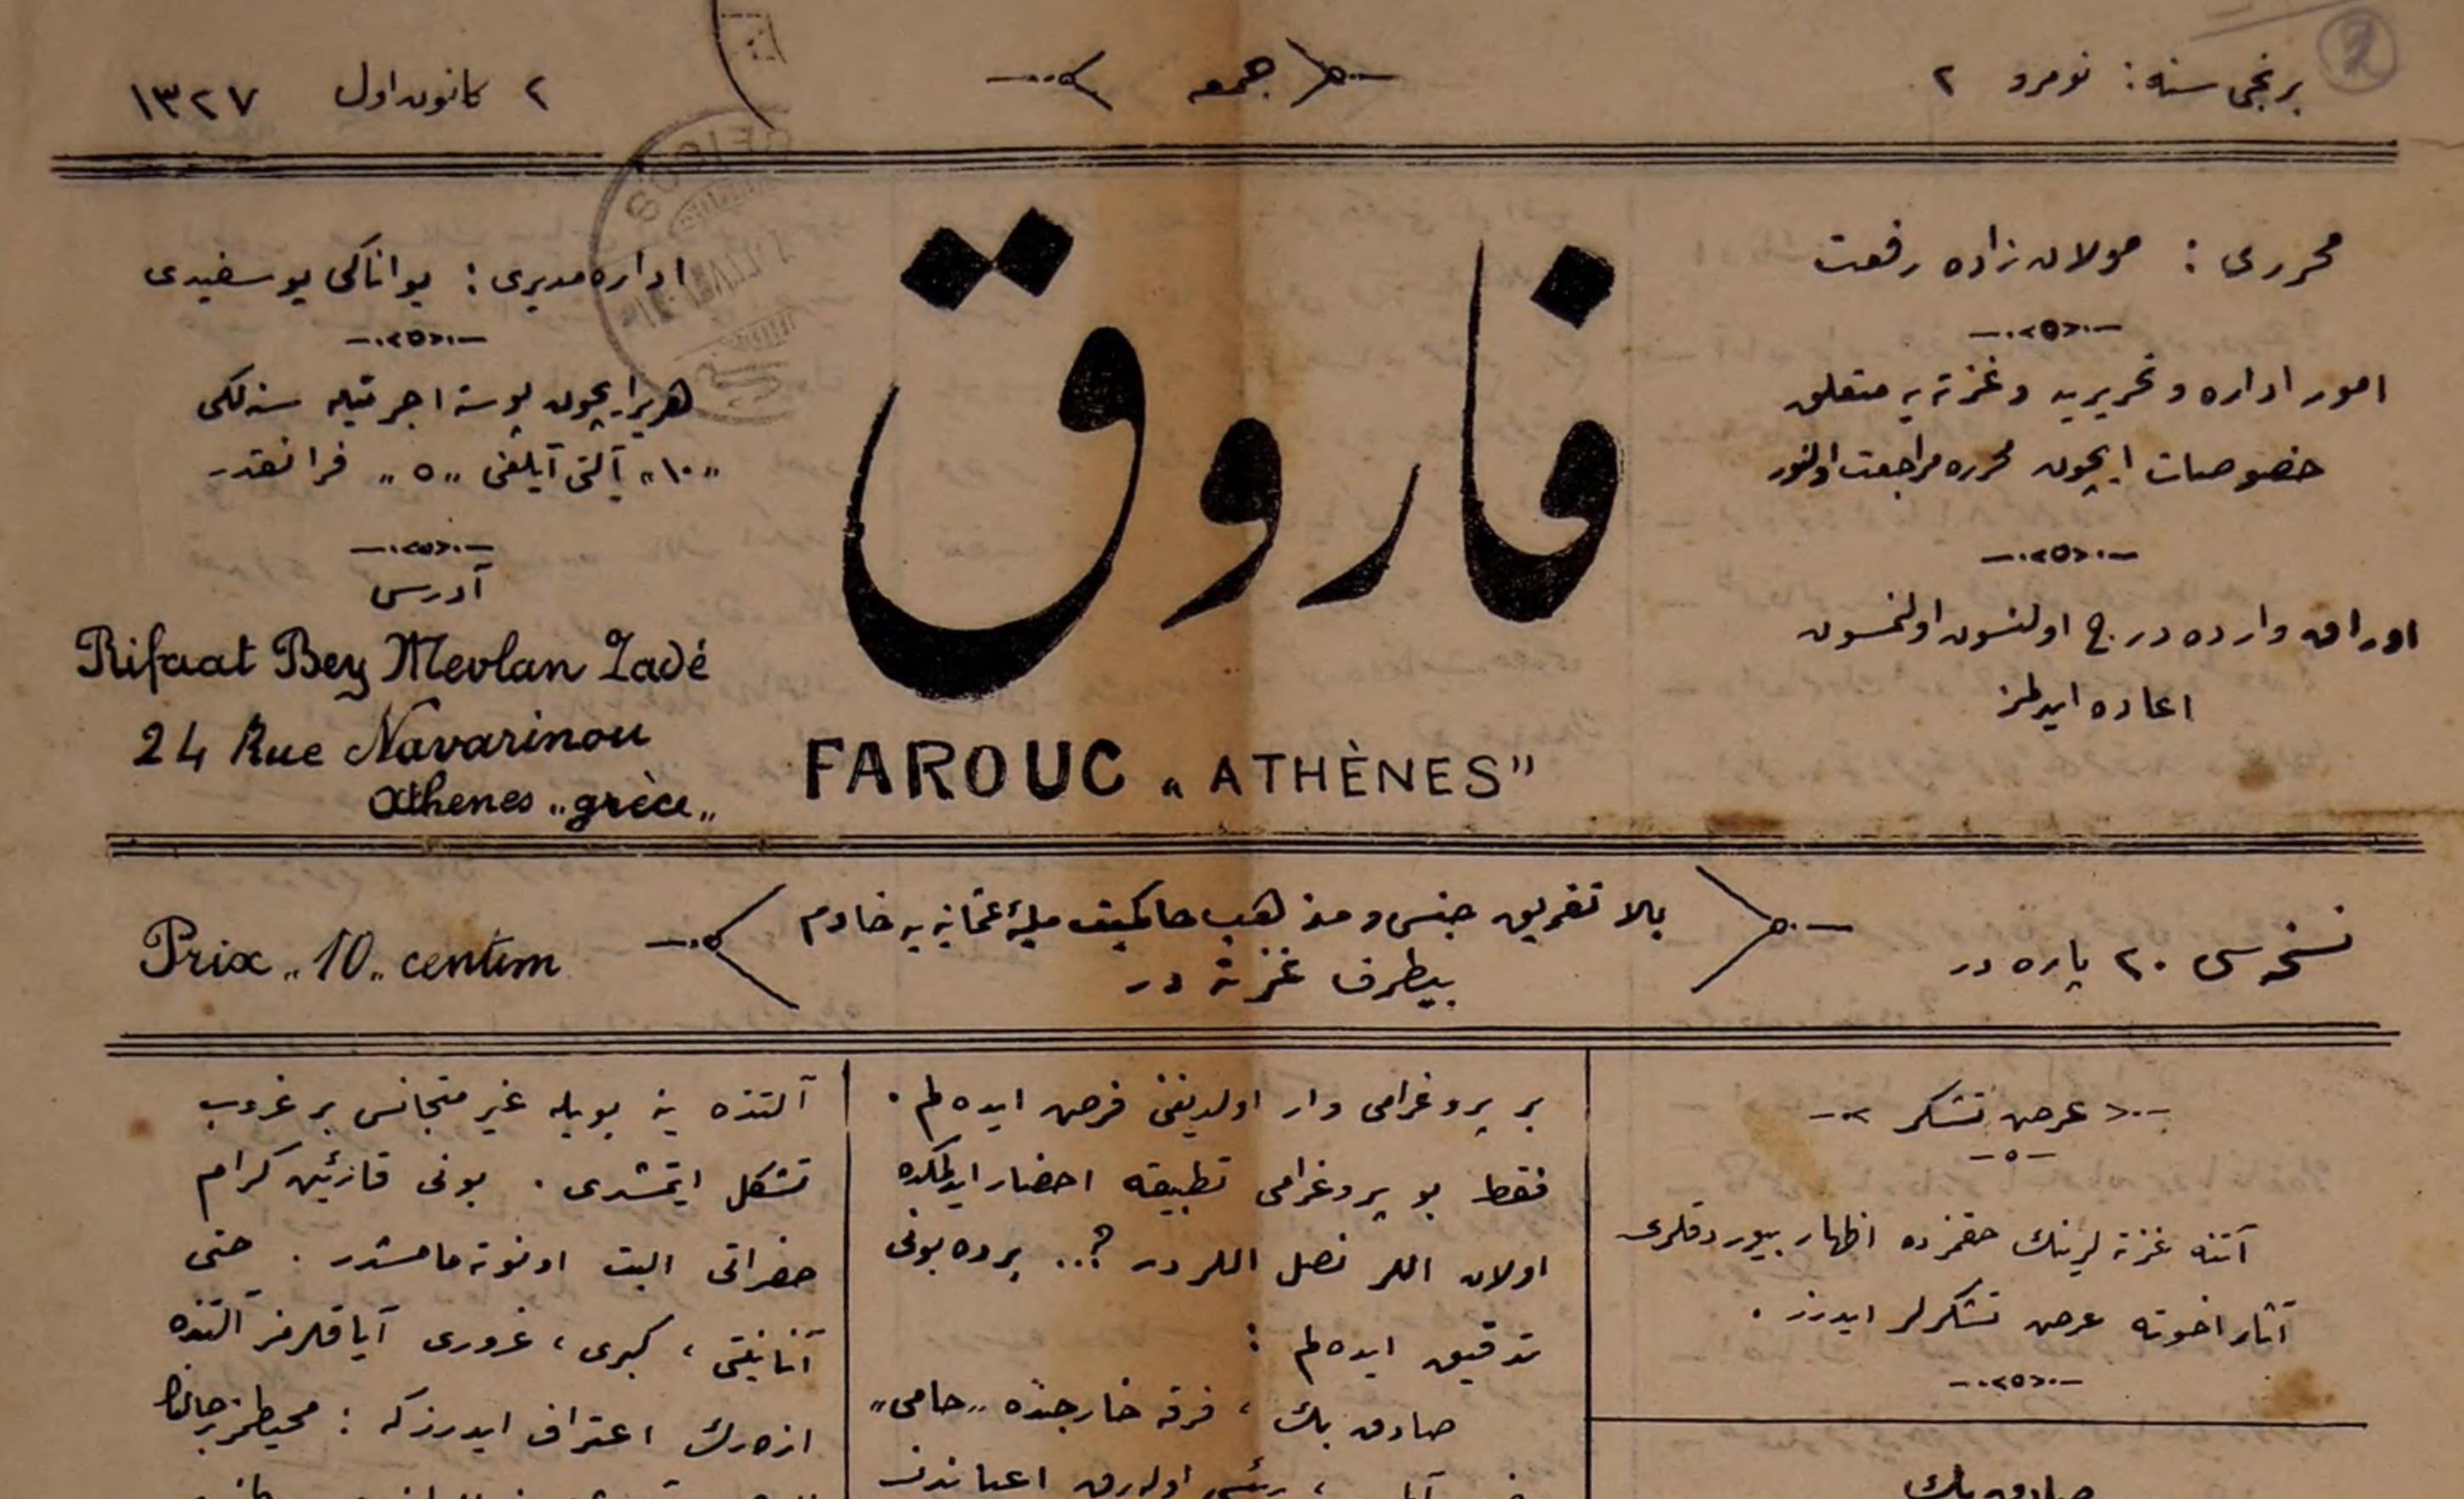 برنجی سنه : نومرو ٢
جمعه
٢ كانون اول ١٣٢٧
محرری : مولان زاده رفعت
امور اداره و تحریریه و غزته یه متعلق
خصوصات ایچون محرره مراجعت اولنور
اوراق وارده درج اولنسون اولنمسون
اعاده ایدلمز
فاروق
FAROUC „ ATHÈNES"
اداره مدیری : یواناكی یوسفیدی
هریر ایچون پوسته اجرتیله سنه لكی
„١٠„ آلتی آیلغی „٥„ فرانقدر
آدرس
Rifaat Bey Mevlan Zadé
24 Rue Navarinou
Athenes „grèce„
نسخه سی ٢٠ پاره در
بلا تفریق جنس و مذهب حاكمیت ملیۀ عثمانیه یه خادم
بیطرف غزته در
Prix „10„ centim
عرض تشكر
آتنه غزته لرینك حقمزده اظهار بیوردقلری
آثار اخوته عرض تشكرلر ایدرز .
صادق بك
بر پروغرامی وار اولدیغنی فرض ایده لم .
فقط بو پروغرامی تطبیقه احضار ایدلمكده
اولان اللر نصل اللردر ؟.. برده بونی
تدقیق ایده لم :
صادق بك ، فرقه خارجنده „حامی„
رئیسی اوله رق اعیاندن
آلتنده ینه بویله غیر متجانس بر غروب
تشكل ایتمشدی . بونی قارئین كرام
حضراتی البت اونوتمامشدر . حتی
آنانیتی ، كبری ، غروری آیاقلرمز آلتنده
ازه رك اعتراف ایدرزكه : محیطمز